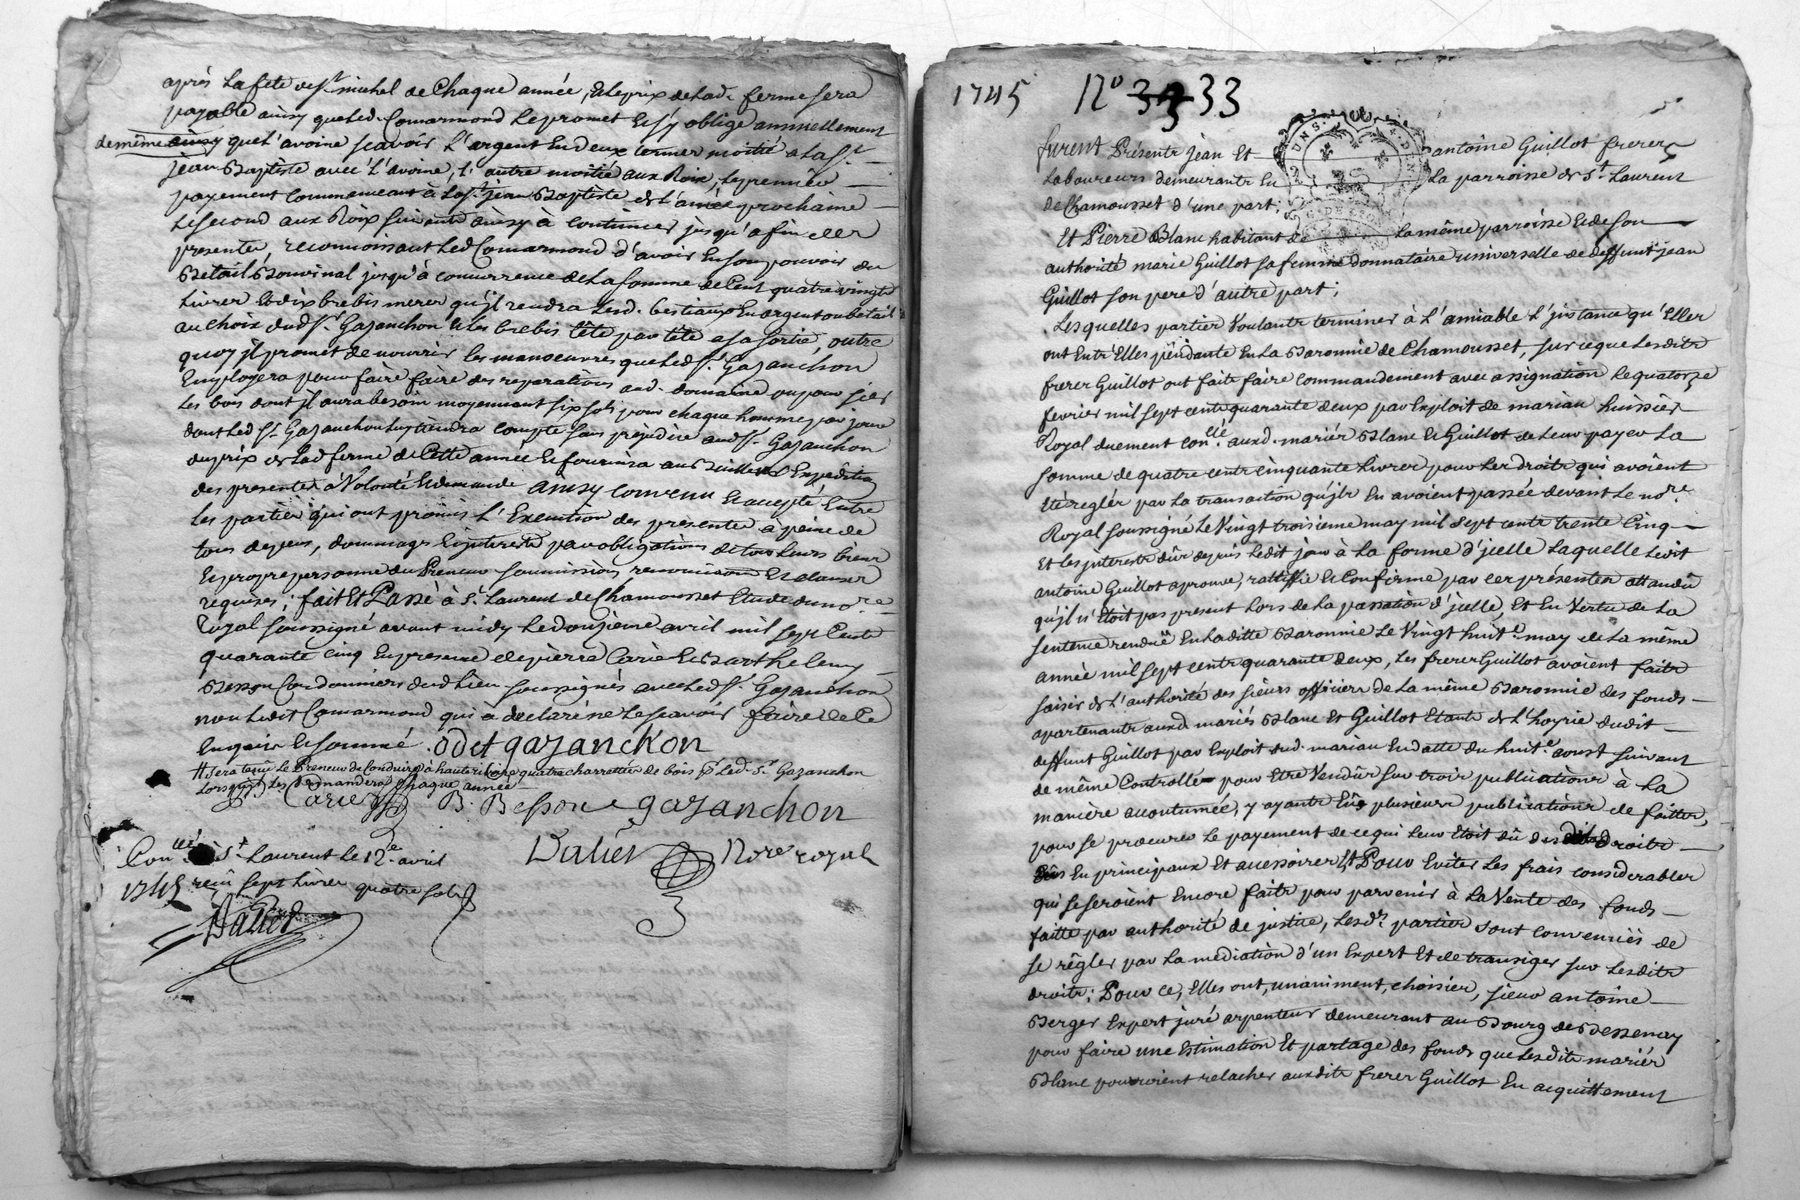 après La fete de St. michel de Chaque année, & le prix de Lad. ferme sera
payable ainsy que led. Comarmond Le promet et s'y oblige annuellement
de même ainsy que L'avoine scavoir L'argent En deux termes moitié a La St.
jean Baptiste avec L'avoine, L'autre moitié aux Roix, Le premier
payement commencant à La St. jean Baptiste de L'année prochaine
Le second aux Roix suivant ainsy à continuer jusqu'a fin des
presentes, reconnoissant Led Comarmond d'avoir En son pouvoir du
Betail Bouvinal jusqu'à concurrence de La somme de Cent quatre vingts
Livres Et dix brebis meres qu'jl rendra Lesd. bestiaux En argent ou betail
au choix dud Sr. Gazanchon & Les brebis tête par tête a sa sortie, outre
quoy jl promet de nourrir les manoeuvres que Led Sr. Gazanchon
Employera pour faire faire des reparations aud. domaine ou pour sier
Les bois dont jl aura besoin moyennant six sols pour chaque homme par jour
dont Led Sr. Gazanchon Luy tiendra compte sans prejudice aud Sr. Gazanchon
du prix de Lad ferme de Cette année & fournira au Bailleur Expedition
des presentes à Volonté & demande ainsy convenu & accepté Entre
Les parties qui ont promis L'Execution des presentes à peine de
tous depens, dommages & jnterests par obligations de tous Leurs biens
& propre personne du Preneur soumissions renonciations Et clauses
requises, fait Et Passé à St. Laurent de Chamousset Etude du nore
Royal soussigné avant midy Le douzieme avril mil sept Cents
quarante cinq En presence de pierre Carie & Barthelemy
Besson Cordonniers dud Lieu soussignés avec Led Sr. Gazanchon
non Ledit Comarmond qui à declaré ne Le scavoir faire de ce
Enquis & sommé. odet gazanchon
# sera tenu Le Preneur de Conduire à hauterivoire quatre charrettées de bois pr Led. Sr. Gazanchon
Lorsqu'jl Les demandera chaque année
Carie B. Besson gazanchon
Dalier Nore royal
Conllé à St Laurent Le 12e avril
1745 reçu sept Livres quatre sols
Dalier
1745 No 33 33
furent Présents Jean Et antoine Guillot freres
Laboureurs demeurants En La parroisse de St. Laurent
de Chamousset d'une part;
Et Pierre Blanc habitant de La même parroisse & de son
authorité marie Guillot sa femme donnataire universelle de deffunt jean
Guillot son pere d'autre part;
Lesquelles parties Voulants terminer à L'amiable L'jnstance qu'Elles
ont Entr'Elles pendante En La Baronnie de Chamousset, sur ce que Lesdits
freres Guillot ont fait faire commandement avec assignation Le quatorze
fevrier mil sept cents quarante deux par Exploit de marian huissier
Royal duement conllé. auxd. mariés Blanc & Guillot de Leur payer La
somme de quatre cents cinquante Livres pour Les droits qui avoient
Eté reglés par La transaction qu'jls En avoient passée devant Le nore.
Royal soussigné Le Vingt troisieme may mil sept cents trente Cinq
Et Les jnterests dûs depuis Ledit jour à La forme d'jcelle Laquelle Ledit
antoine Guillot aprouve, rattiffie & Confirme par Ces présentes attandû
qu'jl n'Etoit pas present Lors de La passation d'jcelle, Et En Vertu de La
sentence renduë En Laditte Baronnie Le Vingt huite. may de La même
année mil sept cents quarante deux, Les freres Guillot avoient faits
saisir de L'authorité des sieurs officiers de La même Baronnie des fonds
apartenants auxd mariés Blanc Et Guillot Etants de L'hoyrie dudit
deffunt Guillot par Exploit dud. marian En datte du huite. aoust suivant
de même Controllé pour Etre Vendûs sur trois publications à La
manière accoutumée, y ayants Eû plusieurs publications de faittes,
pour se procurer Le payement de ce qui Leur Etoit dû des droits
En principaux Et accessoires Et Pour Eviter Les frais considerables
qui se seroient Encore faits pour parvenir à La Vente des fonds
faitte par authorité de justice, Lesdts parties sont convenuës de
se règler par La mediation d'un Expert Et de transiger sur Lesdits
droits; Pour Ce, Elles ont, unaniment, choisies, sieur antoine
Berger Expert juré arpenteur demeurant au Bourg de Bessenay
pour faire une Estimation Et partage des fonds que Lesdits mariés
Blanc pourroient relacher auxdits freres Guillot En acquittement